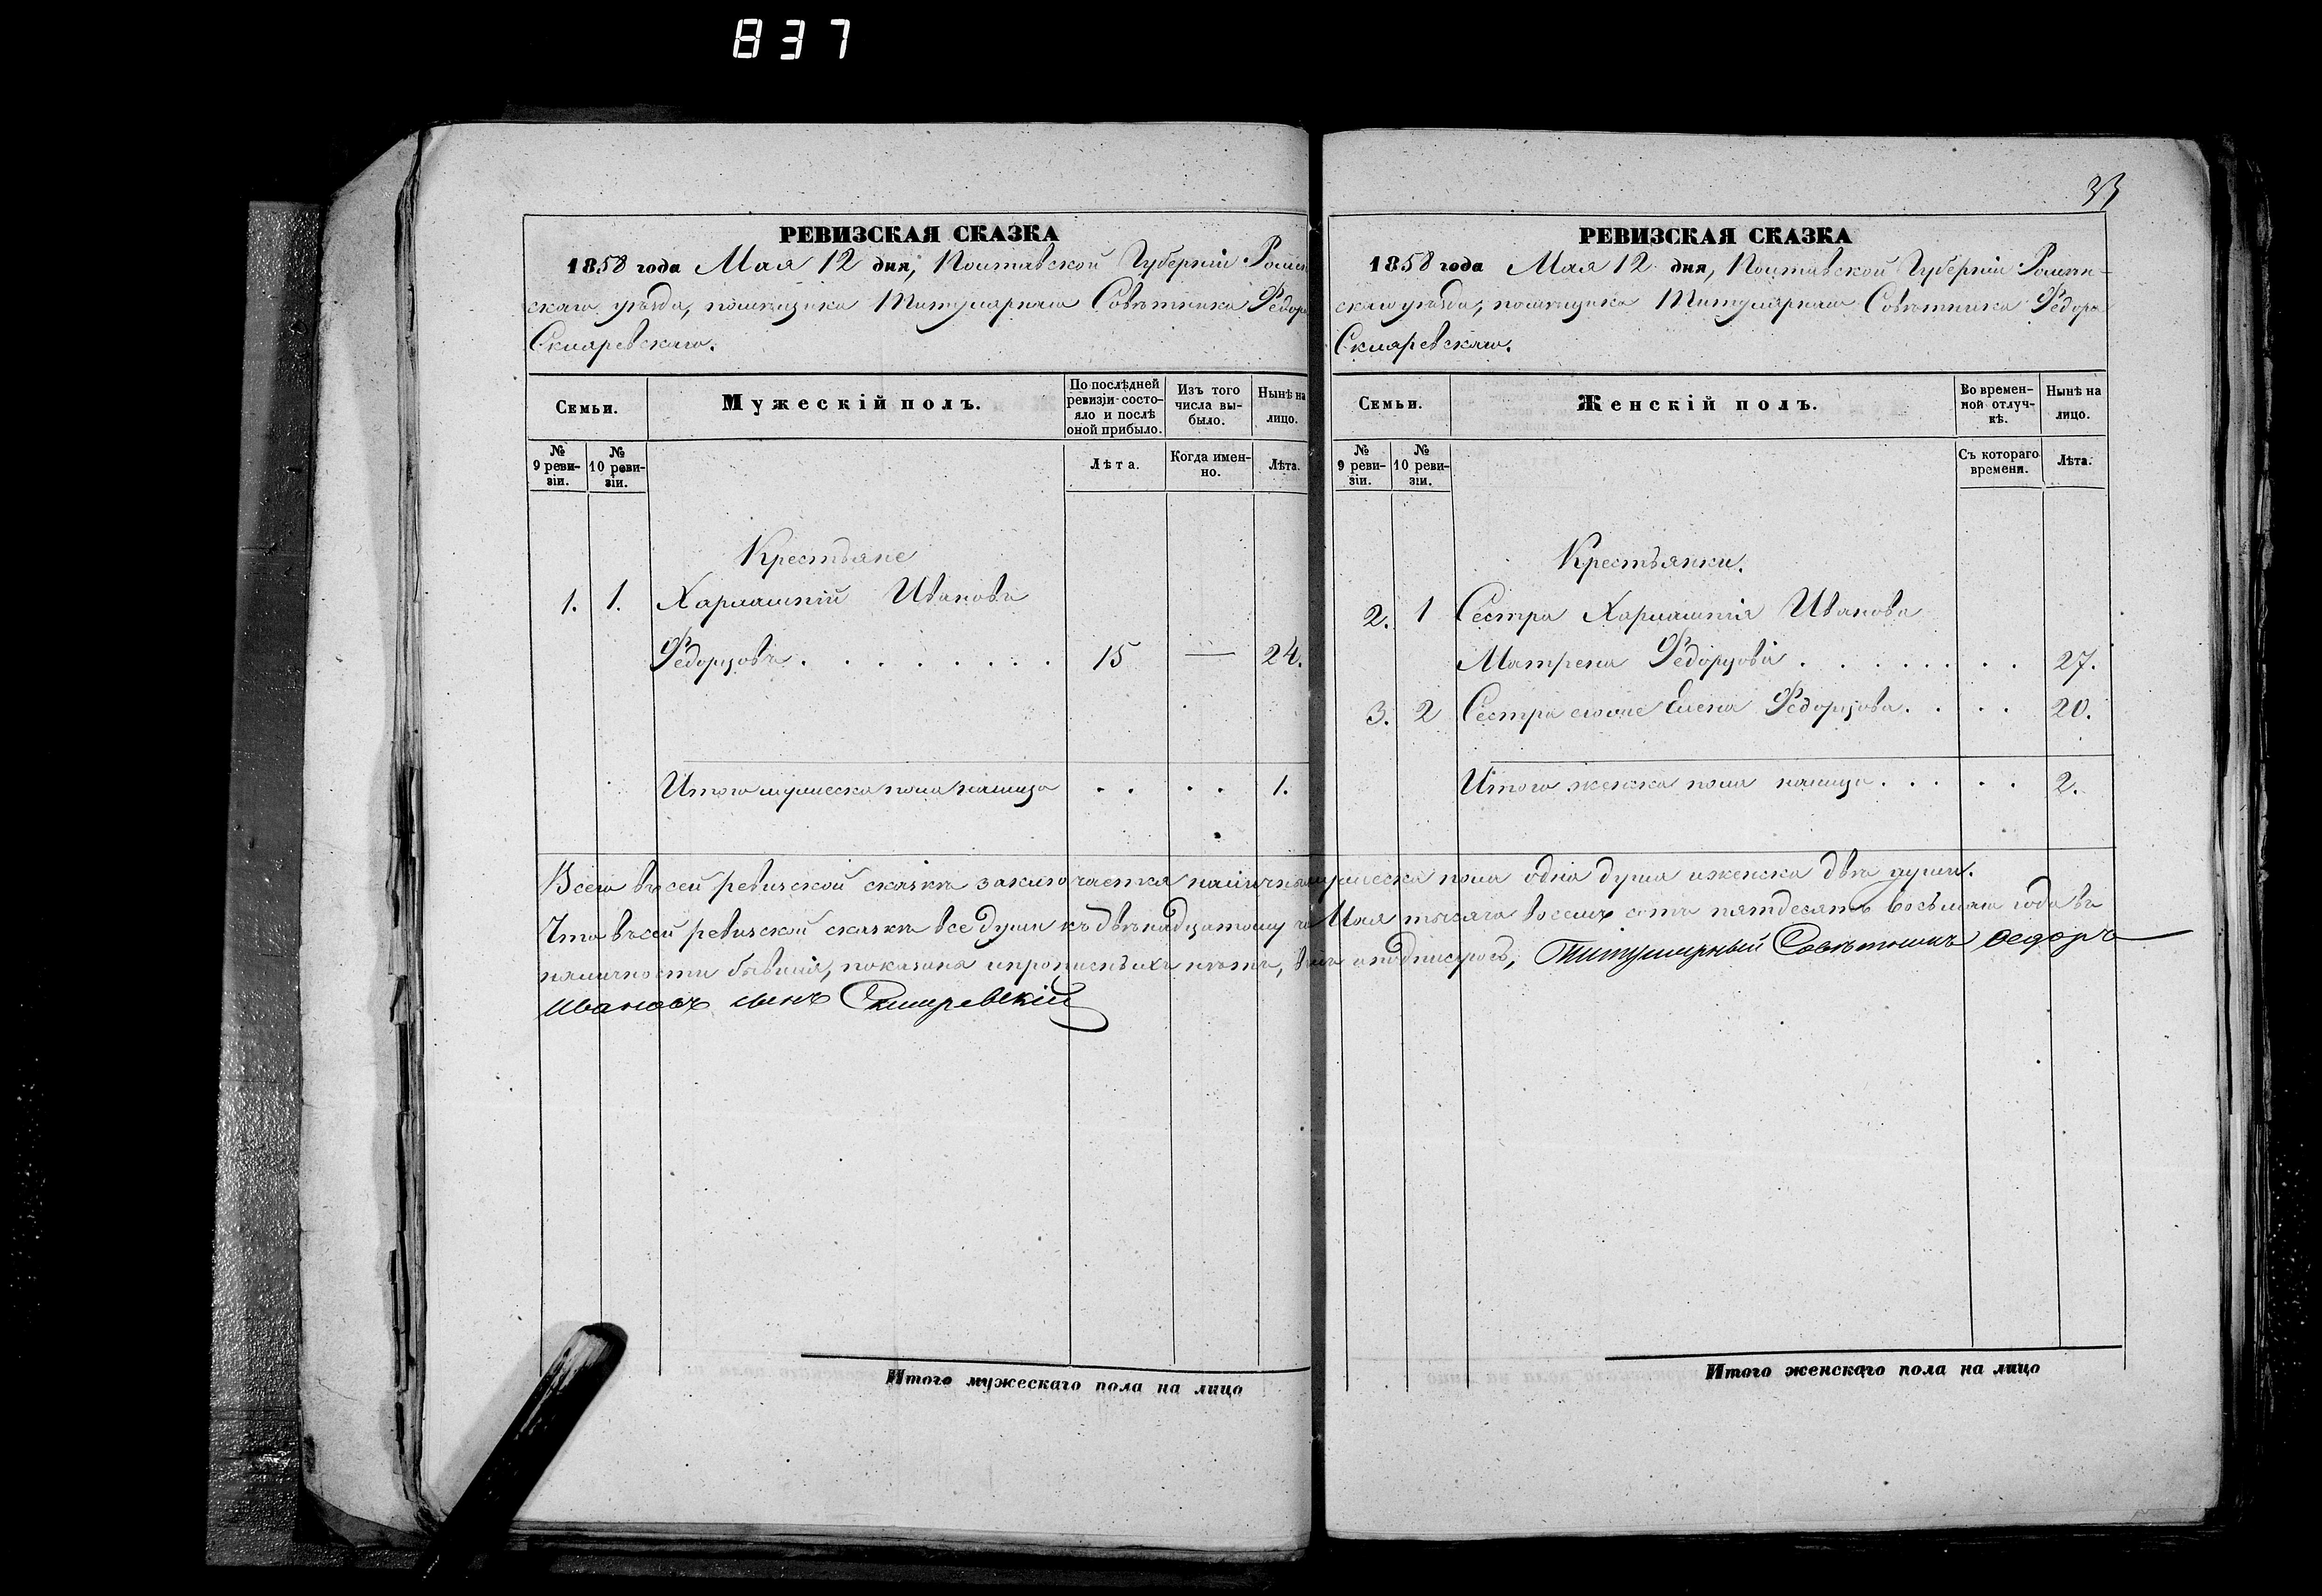 837
33
РЕВИЗСКАЯ СКАЗКА
1858 года Мая 12 дня, Полтавской Губерніи Ромен
скаго уѣзда, помѣщика Титулярнаго Совѣтника Федора
Скляревскаго.
Семьи.
Мужескій полъ.
По послѣдней
ревизіи состо-
яло и послѣ
оной прибыло.
Изъ того
числа вы-
было.
Нынѣ на
лицо.
№
9 реви-
зіи.
№
10 реви-
зіи.
Лѣта.
Когда имен-
но.
Лѣта.
Крестьяне
1. 1. Харлампій Ивановъ
Федорцовъ . . . . . . . . 15 — 24.
Итого мужеска пола налицо . . . . 1.
РЕВИЗСКАЯ СКАЗКА
1858 года Мая 12 дня, Полтавской Губерніи Ромен-
скаго уѣзда, помѣщика Титулярнаго Совѣтника Федора
Скляревскаго.
Семьи.
Женскій полъ.
Во времен-
ной отлуч-
кѣ.
Нынѣ на
лицо.
№
9 реви-
зіи.
№
10 реви-
зіи.
Съ котораго
времени.
Лѣта.
Крестьянки.
2. 1 Сестра Харлампія Иванова
Матрена Федорцова . . . . . . . 27.
3. 2 Сестра его же Елена Федорцова . . . . 20.
Итого женска пола налицо . . . . . 2.
Всего въ сей ревизской сказкѣ заключается наличныхъ мужеска пола одна душа и женска двѣ души.
Что въ сей ревизской сказкѣ все души къ двѣнадцатому ч. Мая тысяча восемь сотъ пятдесятъ восьмаго года въ
наличности бывшія, показаны и прописныхъ нѣтъ, въ томъ и подписуюсь, Титулярный Совѣтникъ Федоръ
Ивановъ сынъ Скляревскій
Итого мужескаго пола на лицо
Итого женскаго пола на лицо